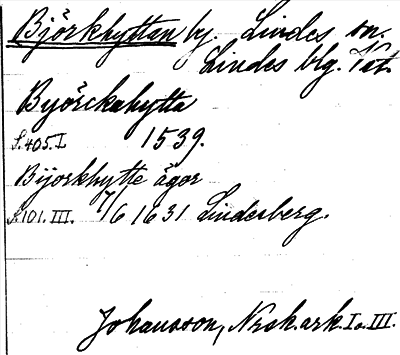 Björkhyttan by. Lindes sn.
Lindes blg. Vst.
Byörckahytta
S. 405. I 1539.
Bijorkhytte ägor
S. 101. III. 7/6 1631 Lindesberg.
Johansson, Nrsk. ark. I o. III.